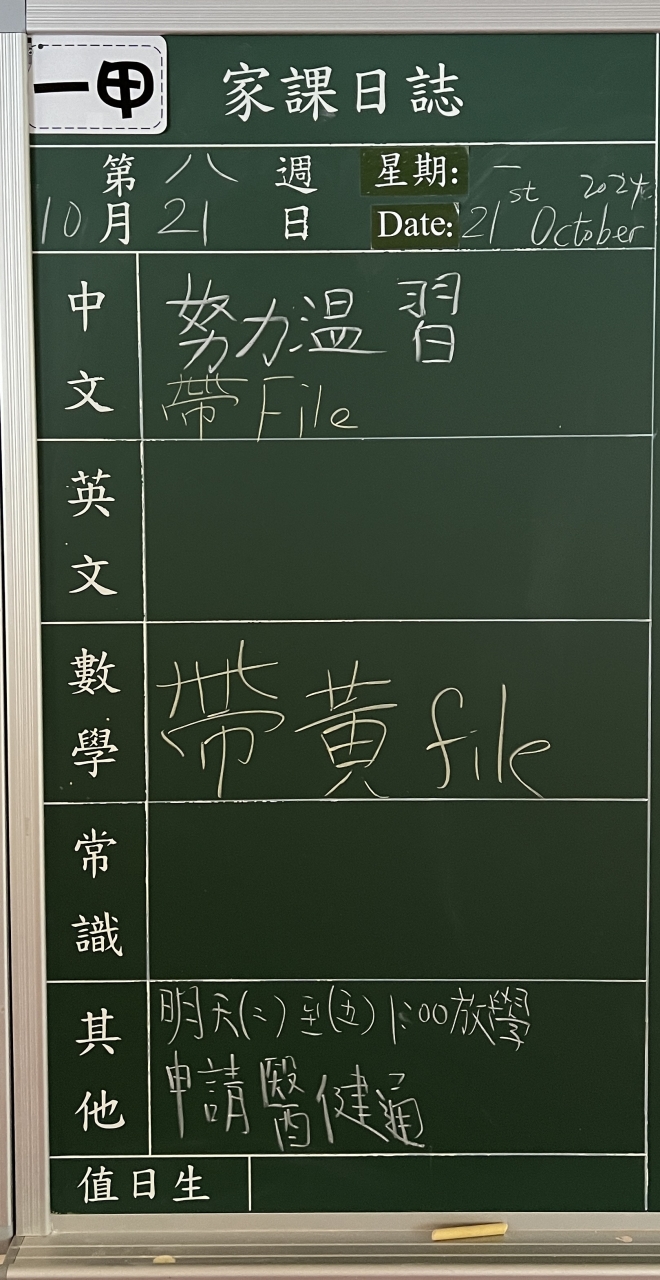 一甲
家課日誌
第八週 星期: 一
10月21日 Date: 21st October 2024
中文 努力温習
帶File
英文
數學 帶黃file
常識
其他 明天(二)至(五)1:00放學
申請醫健通
值日生